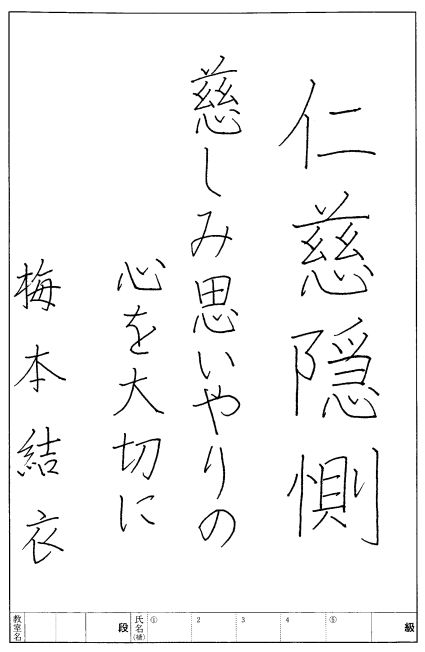 仁慈隠惻
慈しみ思いやりの
心を大切に
梅本結衣
教室名 段 氏名(橫) ① 2 3 4 ⑤ 級